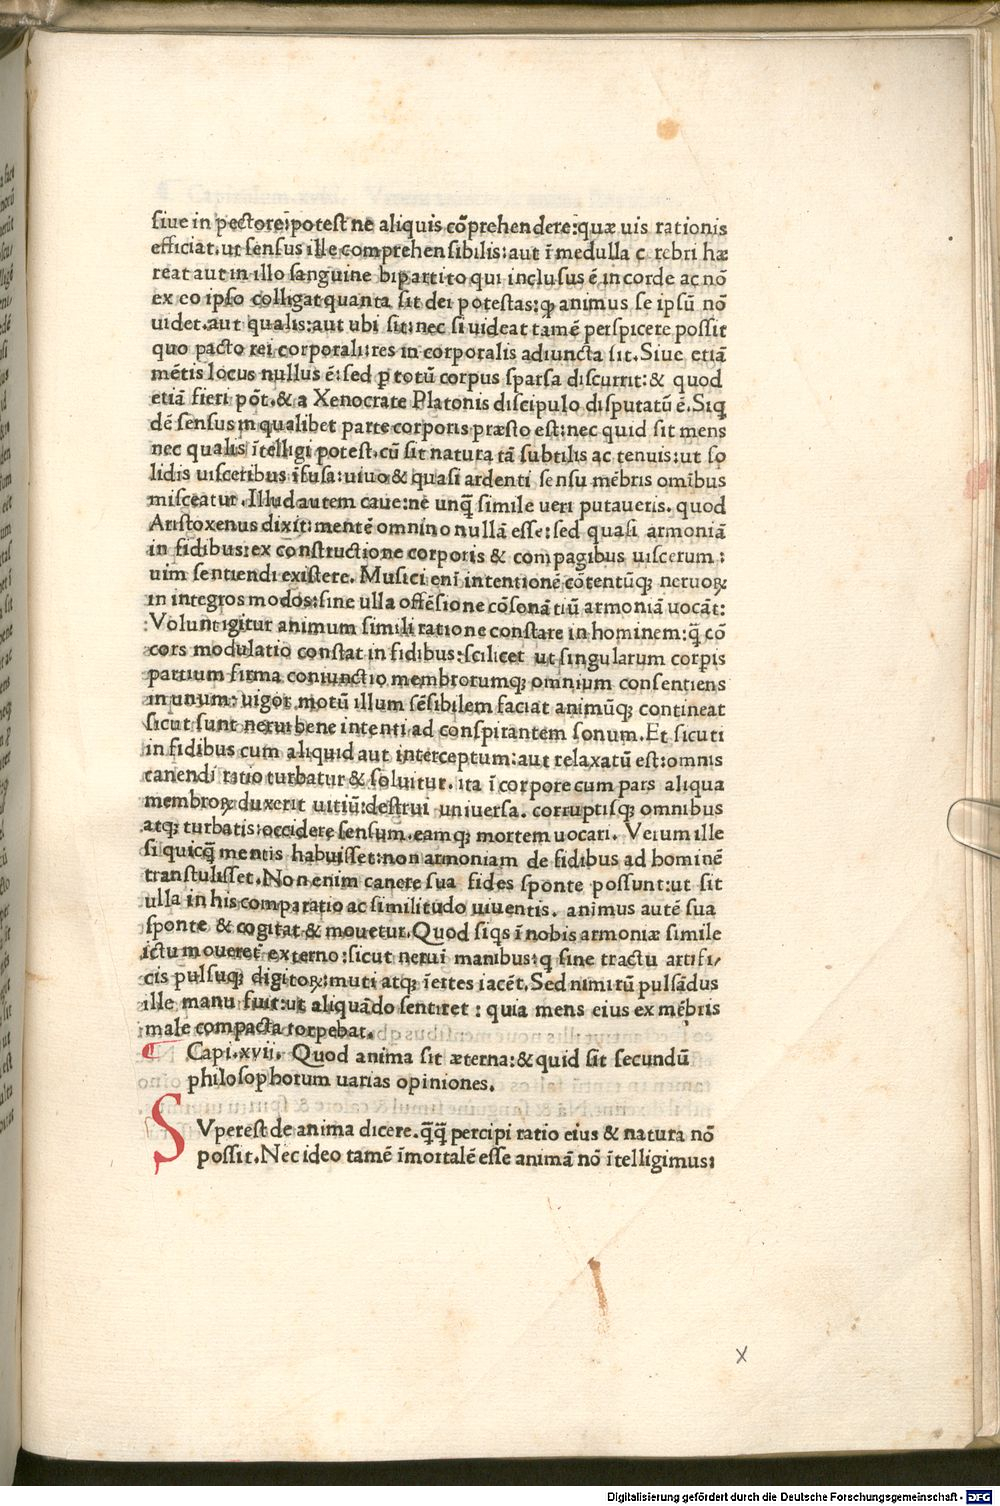 siue in pectore:potest ne aliquis cõprehendere:quæ uis rationis
efficiat.ut sensus ille comprehensibilis:aut ĩ medulla c rebri hæ
reat aut in illo sanguine bipartito qui inclusus ẽ in corde ac nõ
ex eo ipso colligat quanta sit dei potestas:ꝙ animus se ipsũ nõ
uidet.aut qualis:aut ubi sit:nec si uideat tamẽ perspicere possit
quo pacto rei corporali:res in corporalis adiuncta sit.Siue etiã
mẽtis locus nullus ẽ:sed ꝑ totũ corpus sparsa discurrit:& quod
etiã fieri põt.& a Xenocrate Platonis discipulo disputatũ ẽ.Siq̃
dẽ sensus in qualibet parte corporis præsto est:nec quid sit mens
nec qualis ĩtelligi potest.cũ sit natura tã subtilis ac tenuis:ut so
lidis uisceribus ĩfusa:uiuo & quasi ardenti sensu mẽbris omĩbus
misceatur.Illud autem caue:ne unq̃ simile ueri putaueris.quod
Aristoxenus dixit:mentẽ omnino nullã esse:sed quasi armoniã
in fidibus:ex constructione corporis & compagibus uiscerum:
uim sentiendi existere. Musici enĩ intentionẽ cõtentũq; neruoꝝ
in integros modos:sine ulla offẽsione cõsonãtiũ armoniã uocãt:
:Volunt igitur animum simili ratione constare in hominem:q̃ cõ
cors modulatio constat in fidibus:scilicet ut singularum corpis
partium firma coniunctio membrorumq; omnium consentiens
in unum:uigor motũ illum sẽsibilem faciat animũq; contineat
sicut sunt nerui bene intenti ad conspirantem sonum.Et sicuti
in fidibus cum aliquid aut interceptum:aut relaxatũ est:omnis
canendi ratio turbatur & soluitur. ita ĩ corpore cum pars aliqua
membroꝝ duxerit uitiũ:destrui uniuersa. corruptisq; omnibus
atq; turbatis:occidere sensum.eamq; mortem uocari. Verum ille
si quicq̃ mentis habuisset:non armoniam de fidibus ad hominẽ
transtulisset.Non enim canere sua fides sponte possunt:ut sit
ulla in his comparatio ac similitudo uiuentis. animus autẽ sua
sponte & cogitat & mouetur.Quod siqs ĩ nobis armoniæ simile
ictu moueret̃ externo:sicut nerui manibus:q sine tractu artifi/
cis pulsuq; digitoꝝ:muti atq; ĩertes iacẽt.Sed nimirũ pulsãdus
ille manu fuit:ut aliquãdo sentiret : quia mens eius ex mẽbris
male compacta torpebat.
¶ Capi.xvii. Quod anima sit æterna:& quid sit secundũ
philosophorum uarias opiniones.
S Vperest de anima dicere.q̃q̃ percipi ratio eius & natura nõ
possit.Nec ideo tamẽ ĩmortalẽ esse animã nõ ĩtelligimus:
x
Digitalisierung gefördert durch die Deutsche Forschungsgemeinschaft - DFG